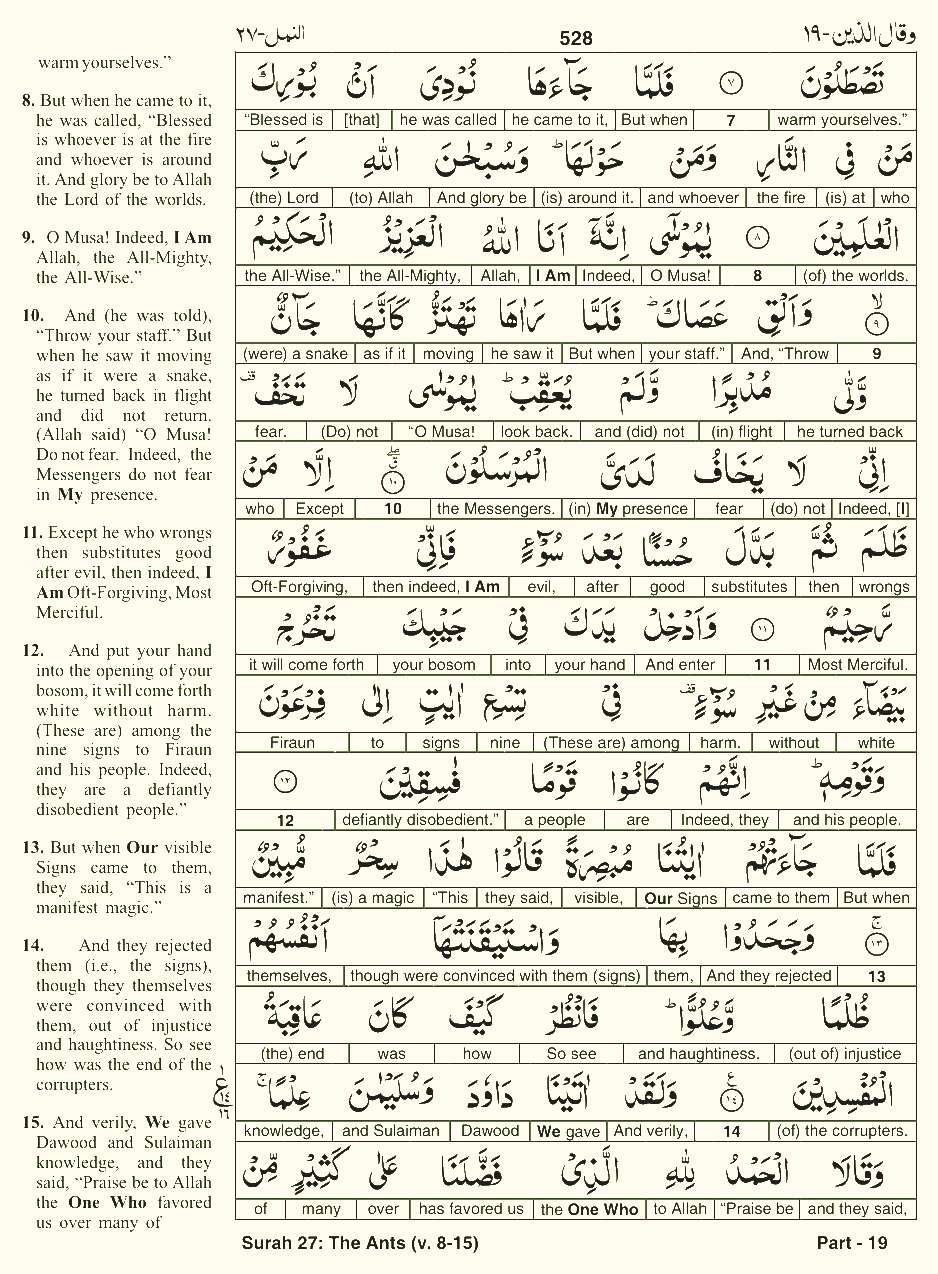 وقال الذين-١٩
528
النمل-٢٧
warm yourselves.”
8. But when he came to it,
he was called, “Blessed
is whoever is at the fire
and whoever is around
it. And glory be to Allah
the Lord of the worlds.
9. O Musa! Indeed, I Am
Allah, the All-Mighty,
the All-Wise.”
10. And (he was told),
“Throw your staff.” But
when he saw it moving
as if it were a snake,
he turned back in flight
and did not return.
(Allah said) “O Musa!
Do not fear. Indeed, the
Messengers do not fear
in My presence.
11. Except he who wrongs
then substitutes good
after evil, then indeed, I
Am Oft-Forgiving, Most
Merciful.
12. And put your hand
into the opening of your
bosom, it will come forth
white without harm.
(These are) among the
nine signs to Firaun
and his people. Indeed,
they are a defiantly
disobedient people.”
13. But when Our visible
Signs came to them,
they said, “This is a
manifest magic.”
14. And they rejected
them (i.e., the signs),
though they themselves
were convinced with
them, out of injustice
and haughtiness. So see
how was the end of the
corrupters.
15. And verily, We gave
Dawood and Sulaiman
knowledge, and they
said, “Praise be to Allah
the One Who favored
us over many of
تَصْطَلُوْنَ ٧ فَلَمَّا جَآءَهَا نُوْدِىَ اَنْۢ بُوْرِكَ
“Blessed is [that] he was called he came to it, But when 7 warm yourselves.”
مَنْ فِى النَّارِ وَمَنْ حَوْلَهَا ؕ وَسُبْحٰنَ اللّٰهِ رَبِّ
(the) Lord (to) Allah And glory be (is) around it. and whoever the fire (is) at who
الْعٰلَمِيْنَ ٨ يٰمُوْسٰۤى اِنَّهٗۤ اَنَا اللّٰهُ الْعَزِيْزُ الْحَكِيْمُ
the All-Wise.” the All-Mighty, Allah, I Am Indeed, O Musa! 8 (of) the worlds.
ۙ ٩ وَاَلْقِ عَصَاكَ ؕ فَلَمَّا رَاٰهَا تَهْتَزُّ كَاَنَّهَا جَآنٌّ
(were) a snake as if it moving he saw it But when your staff.” And, “Throw 9
وَّلّٰى مُدْبِرًا وَّلَمْ يُعَقِّبْ ؕ يٰمُوْسٰى لَا تَخَفْ ۫
fear. (Do) not “O Musa! look back. and (did) not (in) flight he turned back
اِنِّىْ لَا يَخَافُ لَدَىَّ الْمُرْسَلُوْنَ ١٠ اِلَّا مَنْ
who Except 10 the Messengers. (in) My presence fear (do) not Indeed, [I]
ظَلَمَ ثُمَّ بَدَّلَ حُسْنًۢا بَعْدَ سُوْٓءٍ فَاِنِّىْ غَفُوْرٌ
Oft-Forgiving, then indeed, I Am evil, after good substitutes then wrongs
رَّحِيْمٌ ١١ وَاَدْخِلْ يَدَكَ فِىْ جَيْبِكَ تَخْرُجْ
it will come forth your bosom into your hand And enter 11 Most Merciful.
بَيْضَآءَ مِنْ غَيْرِ سُوْٓءٍ ۫ فِىْ تِسْعِ اٰيٰتٍ اِلٰى فِرْعَوْنَ
Firaun to signs nine (These are) among harm. without white
وَقَوْمِهٖ ؕ اِنَّهُمْ كَانُوْا قَوْمًا فٰسِقِيْنَ ١٢
12 defiantly disobedient.” a people are Indeed, they and his people.
فَلَمَّا جَآءَتْهُمْ اٰيٰتُنَا مُبْصِرَةً قَالُوْا هٰذَا سِحْرٌ مُّبِيْنٌ
manifest.” (is) a magic “This they said, visible, Our Signs came to them But when
ۚ ١٣ وَجَحَدُوْا بِهَا وَاسْتَيْقَنَتْهَاۤ اَنْفُسُهُمْ
themselves, though were convinced with them (signs) them, And they rejected 13
ظُلْمًا وَّعُلُوًّا ؕ فَانْظُرْ كَيْفَ كَانَ عَاقِبَةُ
(the) end was how So see and haughtiness. (out of) injustice
الْمُفْسِدِيْنَ ١٤ ع وَلَقَدْ اٰتَيْنَا دَاوٗدَ وَسُلَيْمٰنَ عِلْمًا ۚ
١ ع ١٤ ١٦
knowledge, and Sulaiman Dawood We gave And verily, 14 (of) the corrupters.
وَقَالَا الْحَمْدُ لِلّٰهِ الَّذِىْ فَضَّلَنَا عَلٰى كَثِيْرٍ مِّنْ
of many over has favored us the One Who to Allah “Praise be and they said,
Surah 27: The Ants (v. 8-15)
Part - 19